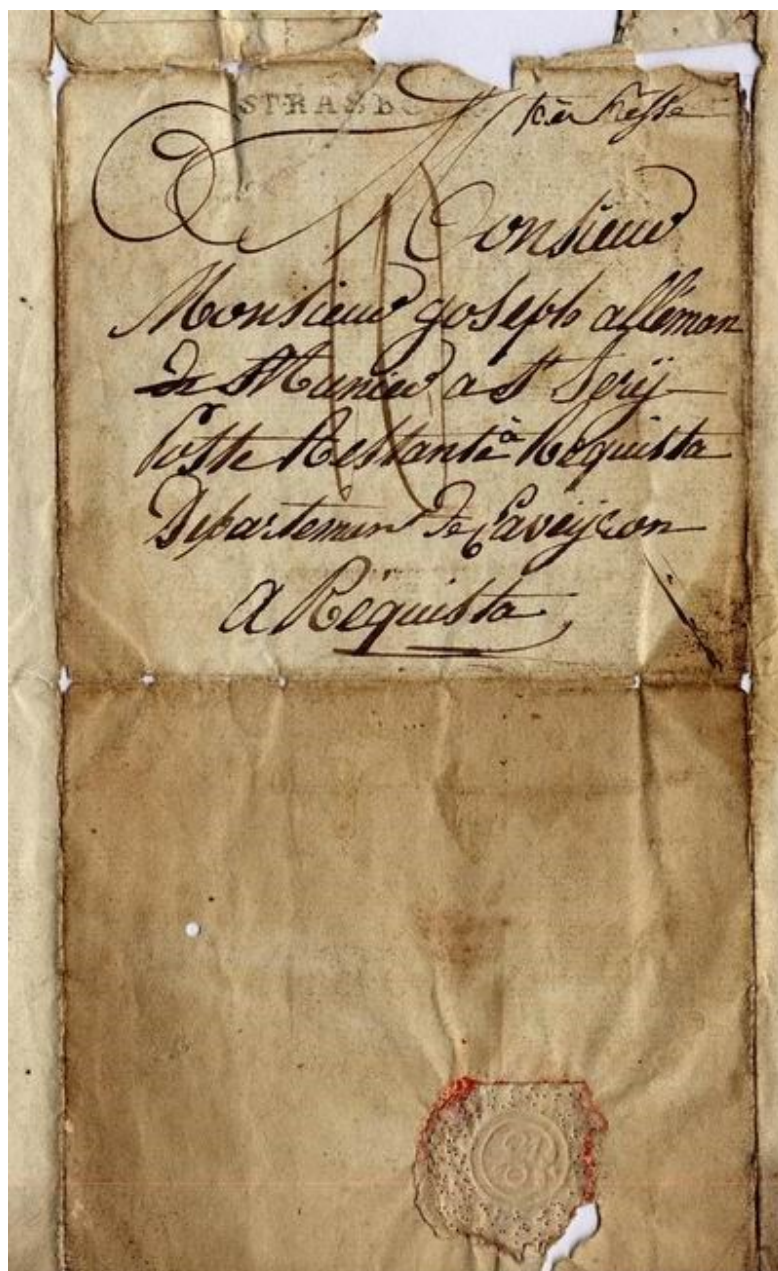 STRASBO
Monsieur
Monsieur Joseph alleman
de a St Jery
Poste Restante à Requista
Departement de Laveÿron
a Requista